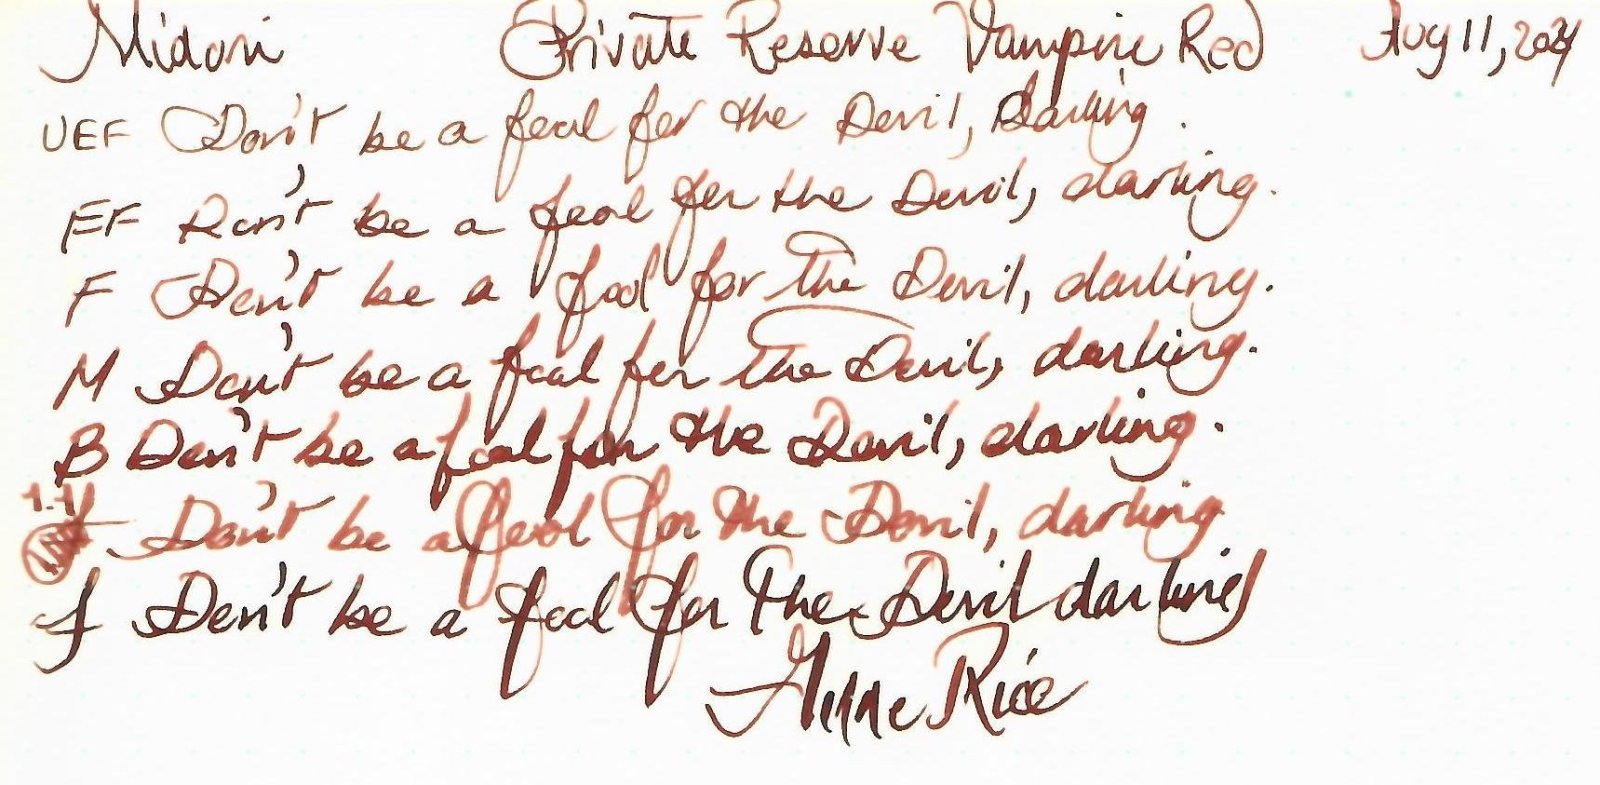 Midori Private Reserve Vampire Red Aug 11, 2024
UEF Don't be a fool for the Devil, Darling.
EF Don't be a fool for the Devil, darling.
F Don't be a fool for the Devil, darling.
M Don't be a fool for the Devil, darling.
B Don't be a fool for the Devil, darling.
1.1 Don't be a fool for the Devil, darling
J Don't be a fool for the Devil darling
Anne Rice